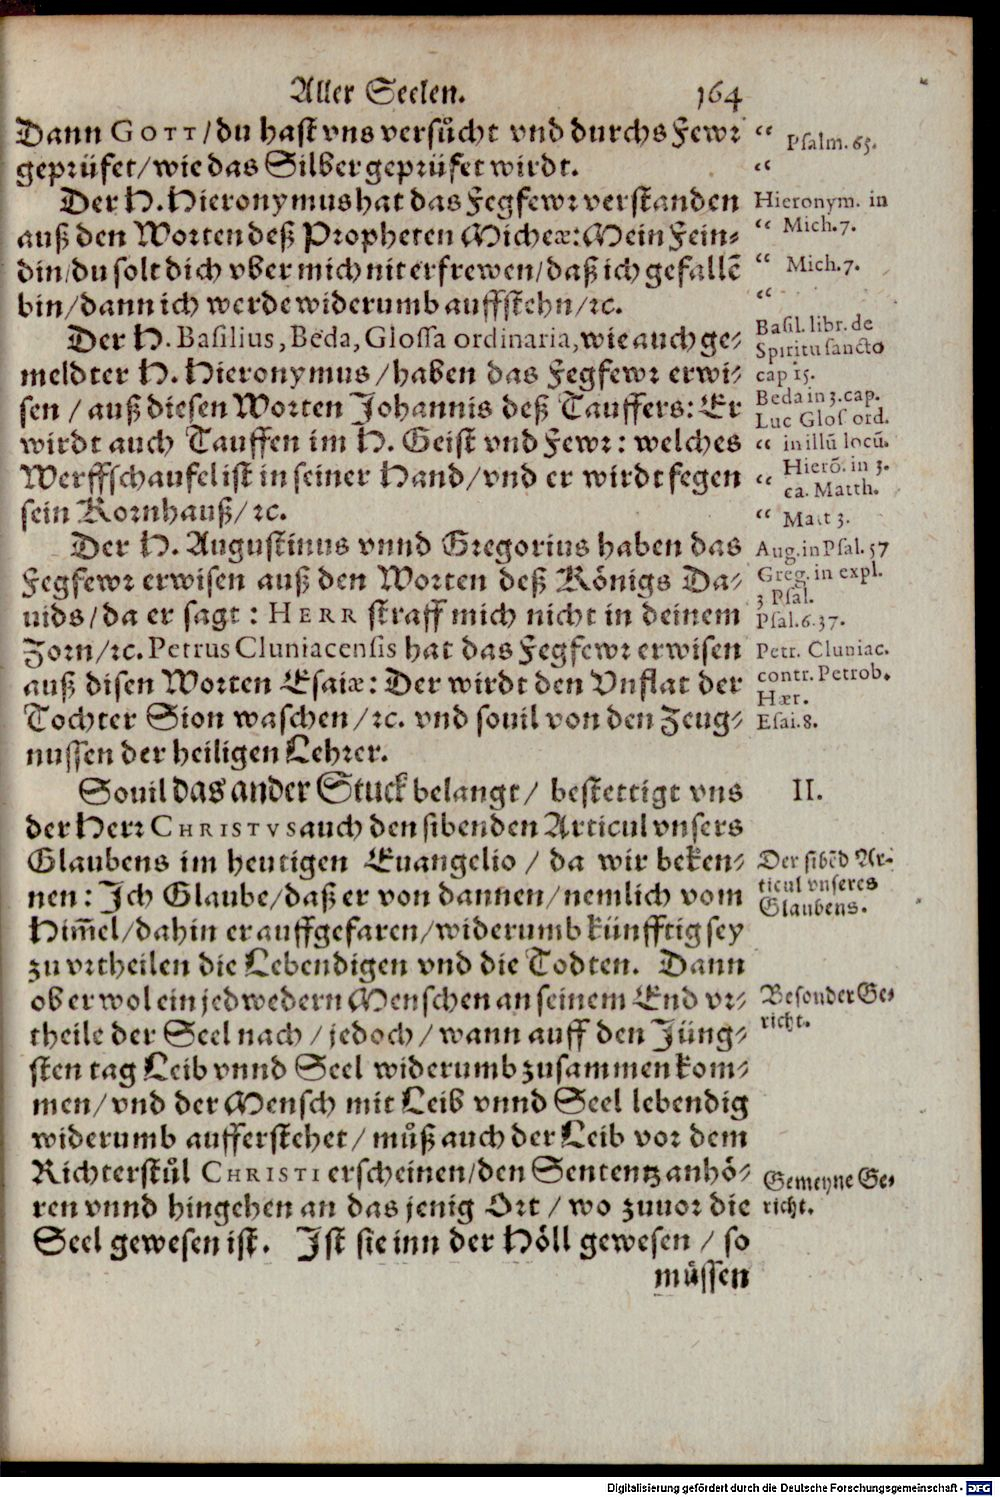 Aller Seelen. 164
Dann GOTT/du hast vns versůcht vnd durchs Fewr
geprüfet/wie das Silber geprüfet wirdt.
“ Psalm. 65.
“
Der H. Hieronymus hat das Fegfewr verstanden
auß den Worten deß Propheten Micheæ: Mein Fein-
din/du solt dich vber mich nit erfrewen/daß ich gefallē
bin/dann ich werde widerumb auffstehn/ꝛc.
Hieronym. in
“ Mich. 7.
“ Mich. 7.
“
Der H. Basilius, Beda, Glossa ordinaria, wie auch ge-
meldter H. Hieronymus/haben das Fegfewr erwi-
sen / auß diesen Worten Johannis deß Tauffers: Er
wirdt auch Tauffen im H. Geist vnd Fewr: welches
Werffschaufel ist in seiner Hand/vnd er wirdt fegen
sein Kornhauß/ꝛc.
Basil. libr. de
Spiritu sancto
cap 15.
Beda in 3. cap.
Luc Glos ord.
“ in illū locū.
“ Hierō. in 3.
ca. Matth.
“ Matt 3.
Der H. Augustinus vnnd Gregorius haben das
Fegfewr erwisen auß den Worten deß Königs Da-
uids/da er sagt: HERR straff mich nicht in deinem
Zorn/ꝛc. Petrus Cluniacensis hat das Fegfewr erwisen
auß disen Worten Esaiæ: Der wirdt den Vnflat der
Tochter Sion waschen/ꝛc. vnd souil von den Zeug-
nussen der heiligen Lehrer.
Aug. in Psal. 37
Greg. in expl.
3 Psal.
Psal. 6. 37.
Petr. Cluniac.
contr. Petrob.
Hær.
Esai. 8.
Souil das ander Stuck belangt/ bestettigt vns
der Herr CHRISTVS auch den sibenden Articul vnsers
Glaubens im heutigen Euangelio / da wir beken-
nen: Ich Glaube/daß er von dannen/nemlich vom
Him̄el/dahin er auffgefaren/widerumb künfftig sey
zu vrtheilen die Lebendigen vnd die Todten. Dann
ob er wol ein jedwedern Menschen an seinem End vr-
theile der Seel nach / jedoch / wann auff den Jüng-
sten tag Leib vnnd Seel widerumb zusammen kom-
men/vnd der Mensch mit Leib vnnd Seel lebendig
widerumb aufferstehet/ můß auch der Leib vor dem
Richterstůl CHRISTI erscheinen/den Sententz anhö-
ren vnnd hingehen an das jenig Ort/ wo zuuor die
Seel gewesen ist. Ist sie inn der Höll gewesen / so
müssen
II.
Der sibēd Ar-
ticul vnseres
Glaubens.
Besonder Ge-
richt.
Gemeyne Ge-
richt.
Digitalisierung gefördert durch die Deutsche Forschungsgemeinschaft - DFG